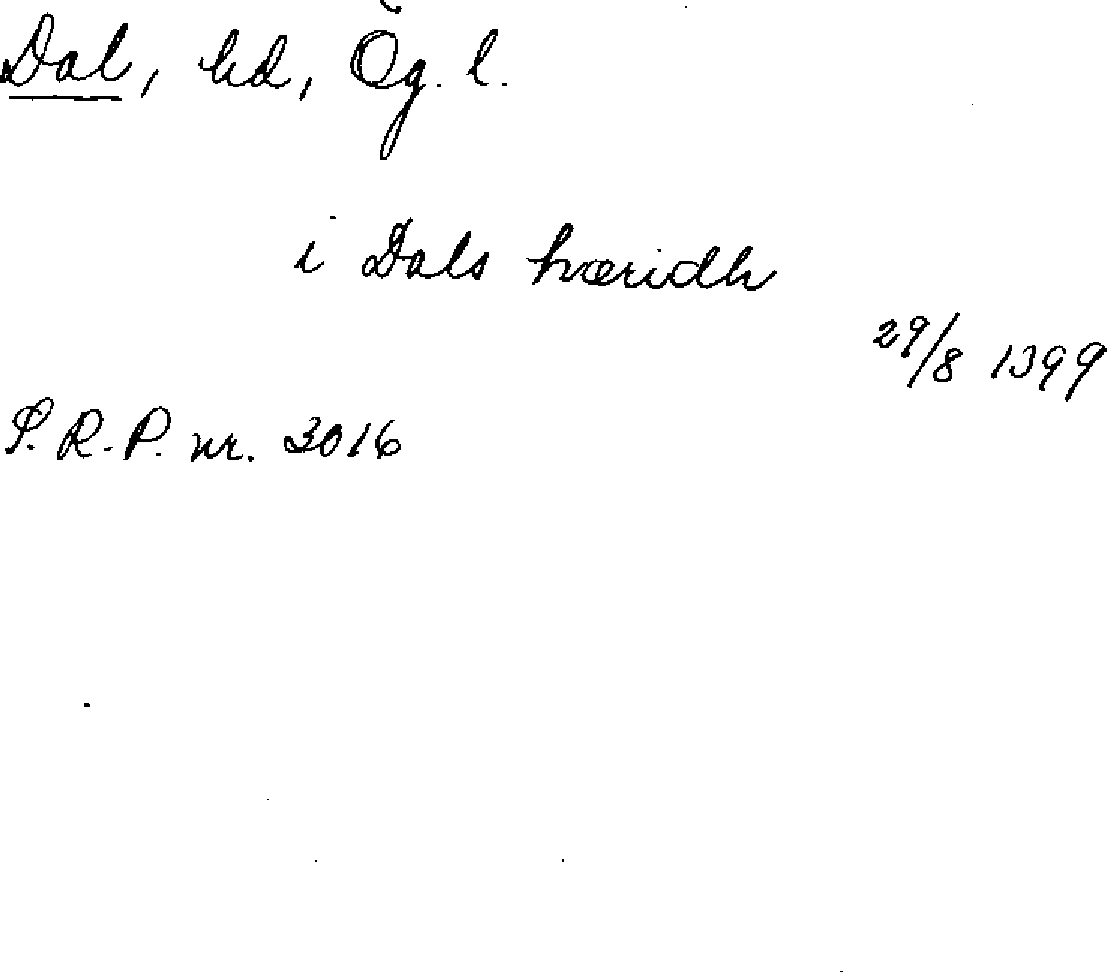 Dal, hd, Ög. l.
i Dals hæridh
29/8 1399
S. R. P. nr. 3016